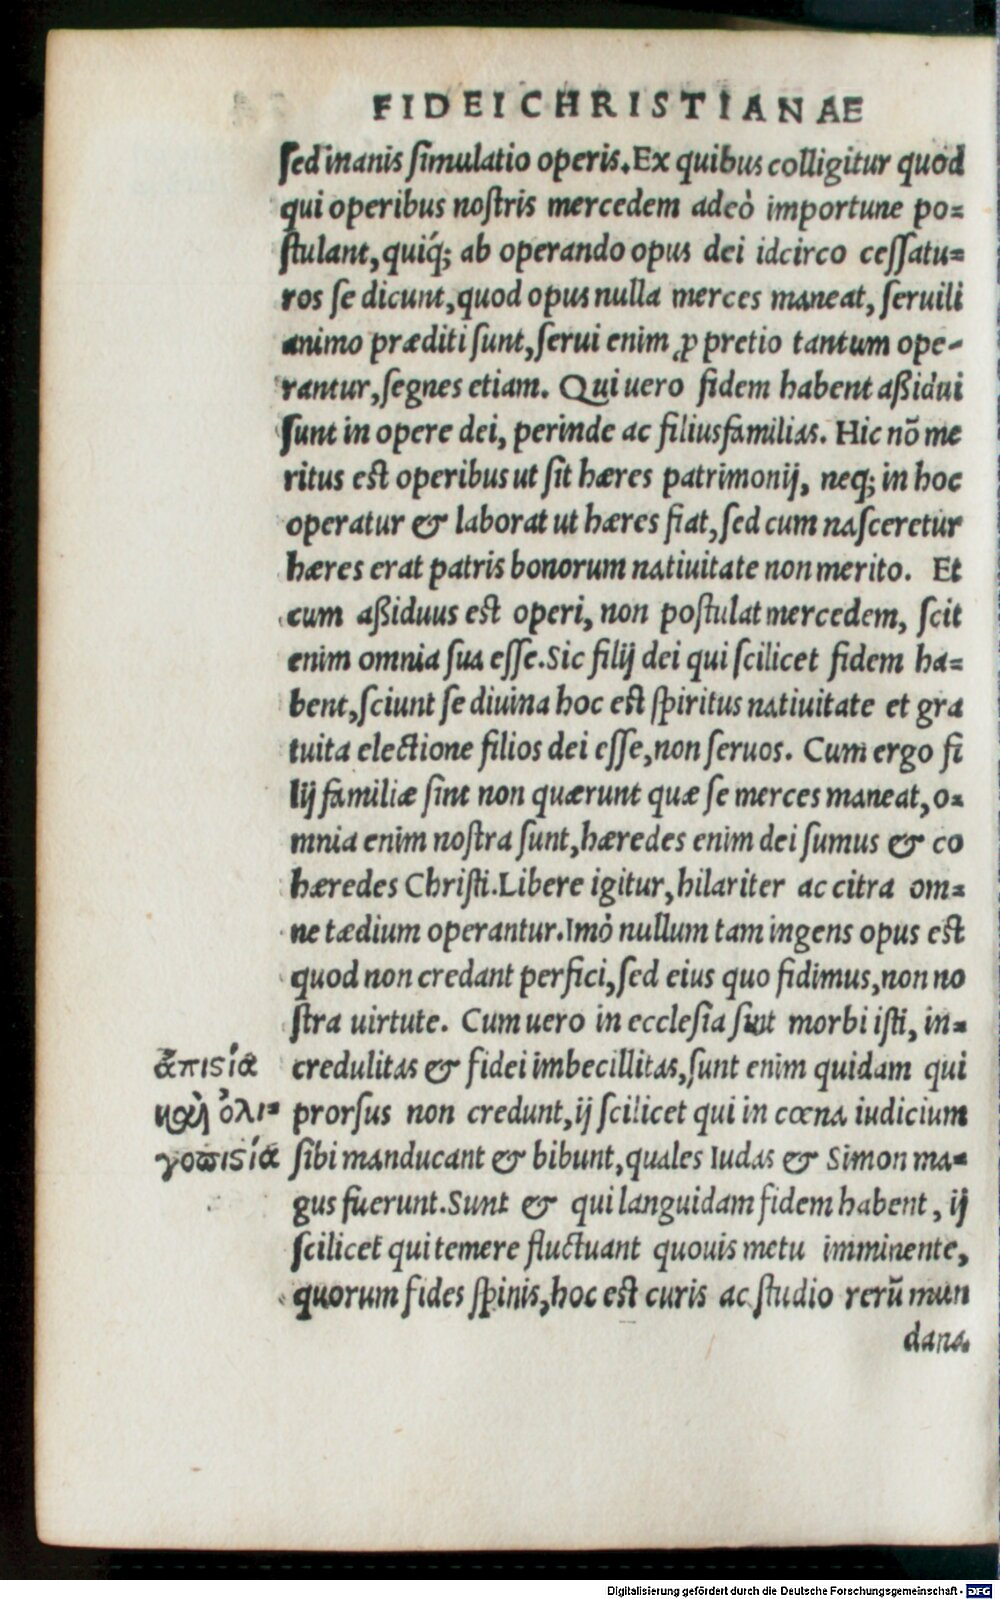 FIDEI CHRISTIANAE
sed inanis simulatio operis. Ex quibus colligitur quòd
qui operibus nostris mercedem adeò importune po=
stulant, quiq́; ab operando opus dei idcirco cessatu=
ros se dicunt, quod opus nulla merces maneat, seruili
animo præditi sunt, serui enim ꝓ pretio tantum ope-
rantur, segnes etiam. Qui uero fidem habent aßidui
sunt in opere dei, perinde ac filiusfamilias. Hic nõ me
ritus est operibus ut sit hæres patrimonij, neq; in hoc
operatur & laborat ut hæres fiat, sed cum nasceretur
hæres erat patris bonorum natiuitate non merito. Et
cum aßiduus est operi, non postulat mercedem, scit
enim omnia sua esse. Sic filij dei qui scilicet fidem ha=
bent, sciunt se diuina hoc est spiritus natiuitate et gra
tuita electione filios dei esse, non seruos. Cum ergo fi
lij familiæ sint non quærunt quæ se merces maneat, o=
mnia enim nostra sunt, hæredes enim dei sumus & co
hæredes Christi. Libere igitur, hilariter ac citra om=
ne tædium operantur. Imò nullum tam ingens opus est
quod non credant perfici, sed eius quo fidimus, non no
stra uirtute. Cum uero in ecclesia sint morbi isti, in=
ἀπιϛία credulitas & fidei imbecillitas, sunt enim quidam qui
καὶ ὀλι= prorsus non credunt, ij scilicet qui in cœna iudicium
γοπιϛία sibi manducant & bibunt, quales Iudas & Simon ma=
gus fuerunt. Sunt & qui languidam fidem habent, ij
scilicet qui temere fluctuant quouis metu imminente,
quorum fides spinis, hoc est curis ac studio rerũ mun
dana.
Digitalisierung gefördert durch die Deutsche Forschungsgemeinschaft - DFG